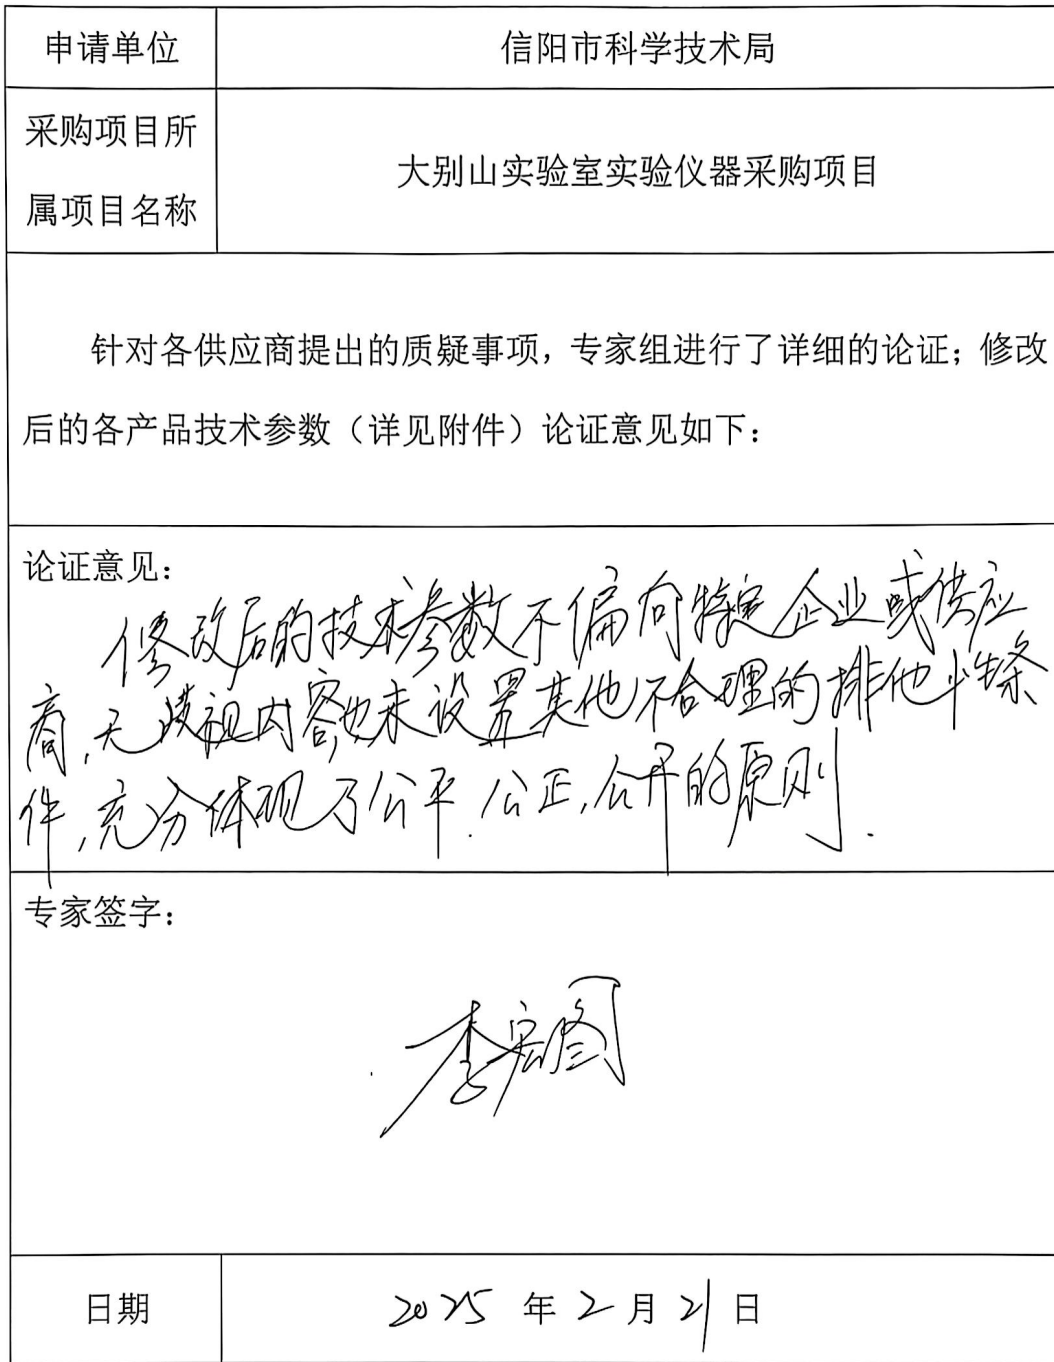 申请单位 信阳市科学技术局
采购项目所
属项目名称
大别山实验室实验仪器采购项目
针对各供应商提出的质疑事项，专家组进行了详细的论证；修改
后的各产品技术参数（详见附件）论证意见如下：
论证意见：
修改后的技术参数不偏向特定企业或供应
商，无歧视内容，也未设置其他不合理的排他性条
件，充分体现了公平、公正、公开的原则.
专家签字：
李宏图
日期 2025 年 2 月 21 日